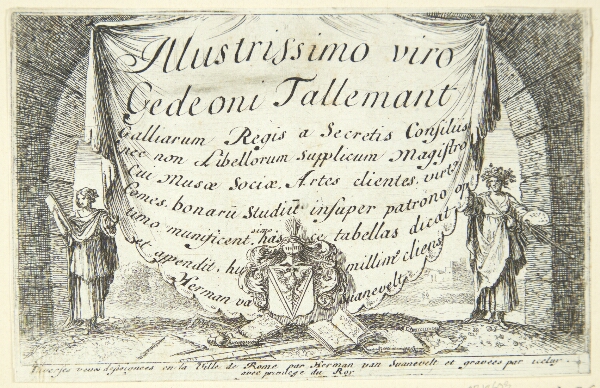 Illustrissimo viro
Gedeoni Tallemant
Galliarum Regis a Secretis Consiliis
nec non Libellorum Supplicum Magistro
Cui Musæ Sociæ, Artes clientes, virtus
Comes, bonarū Studiū insuper patrono op
timo munificentissimo has ce tabellas dicat
et appendit, humillimus cliens
Herman van Suanevelt
Diverses veues dessignées en la Ville de Rome par Herman van Suanevelt et gravées par
avec privilege du Roy